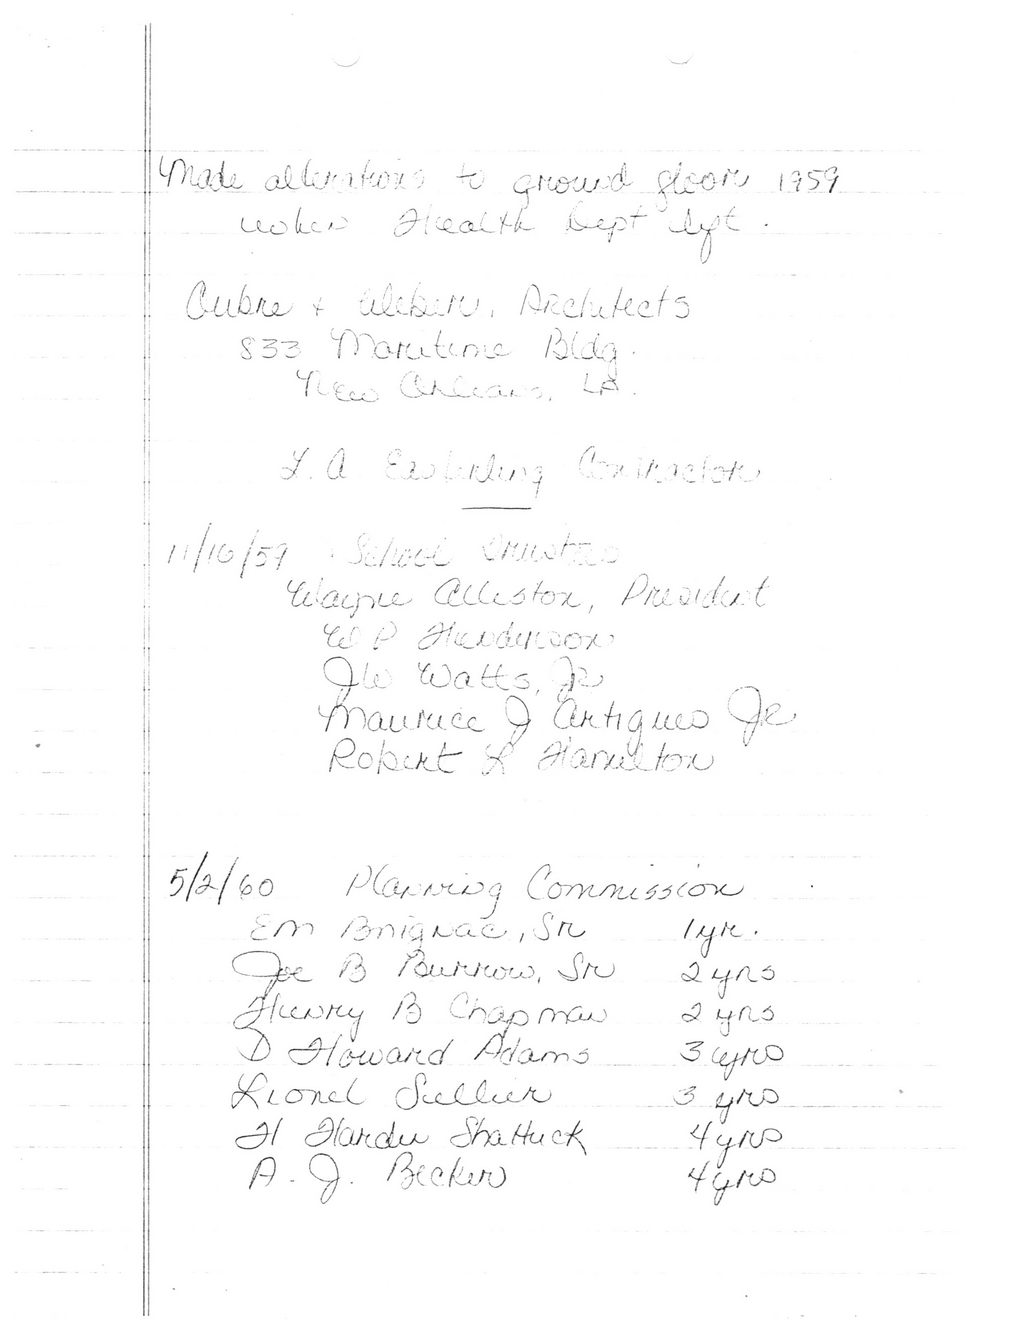 Made alterations to ground floor 1959
when Health Dept left.
Cubre + Weber, Architects
833 Maritime Bldg.
New Orleans, LA.
L. A Easterling Contractor
11/16/59 School Trustees
Wayne Alliston, President
W P Henderson
JW Watts, Jr
Maurice J Artigues Jr
Robert L Hamilton
5/2/60 Planning Commission
EM Brignac, Sr 1yr.
Joe B Burrow, Sr 2 yrs
Henry B Chapman 2 yrs
D Howard Adams 3 yrs
Lionel Sellier 3 yrs
H Hardie Shattuck 4yrs
A. J. Becker 4yrs